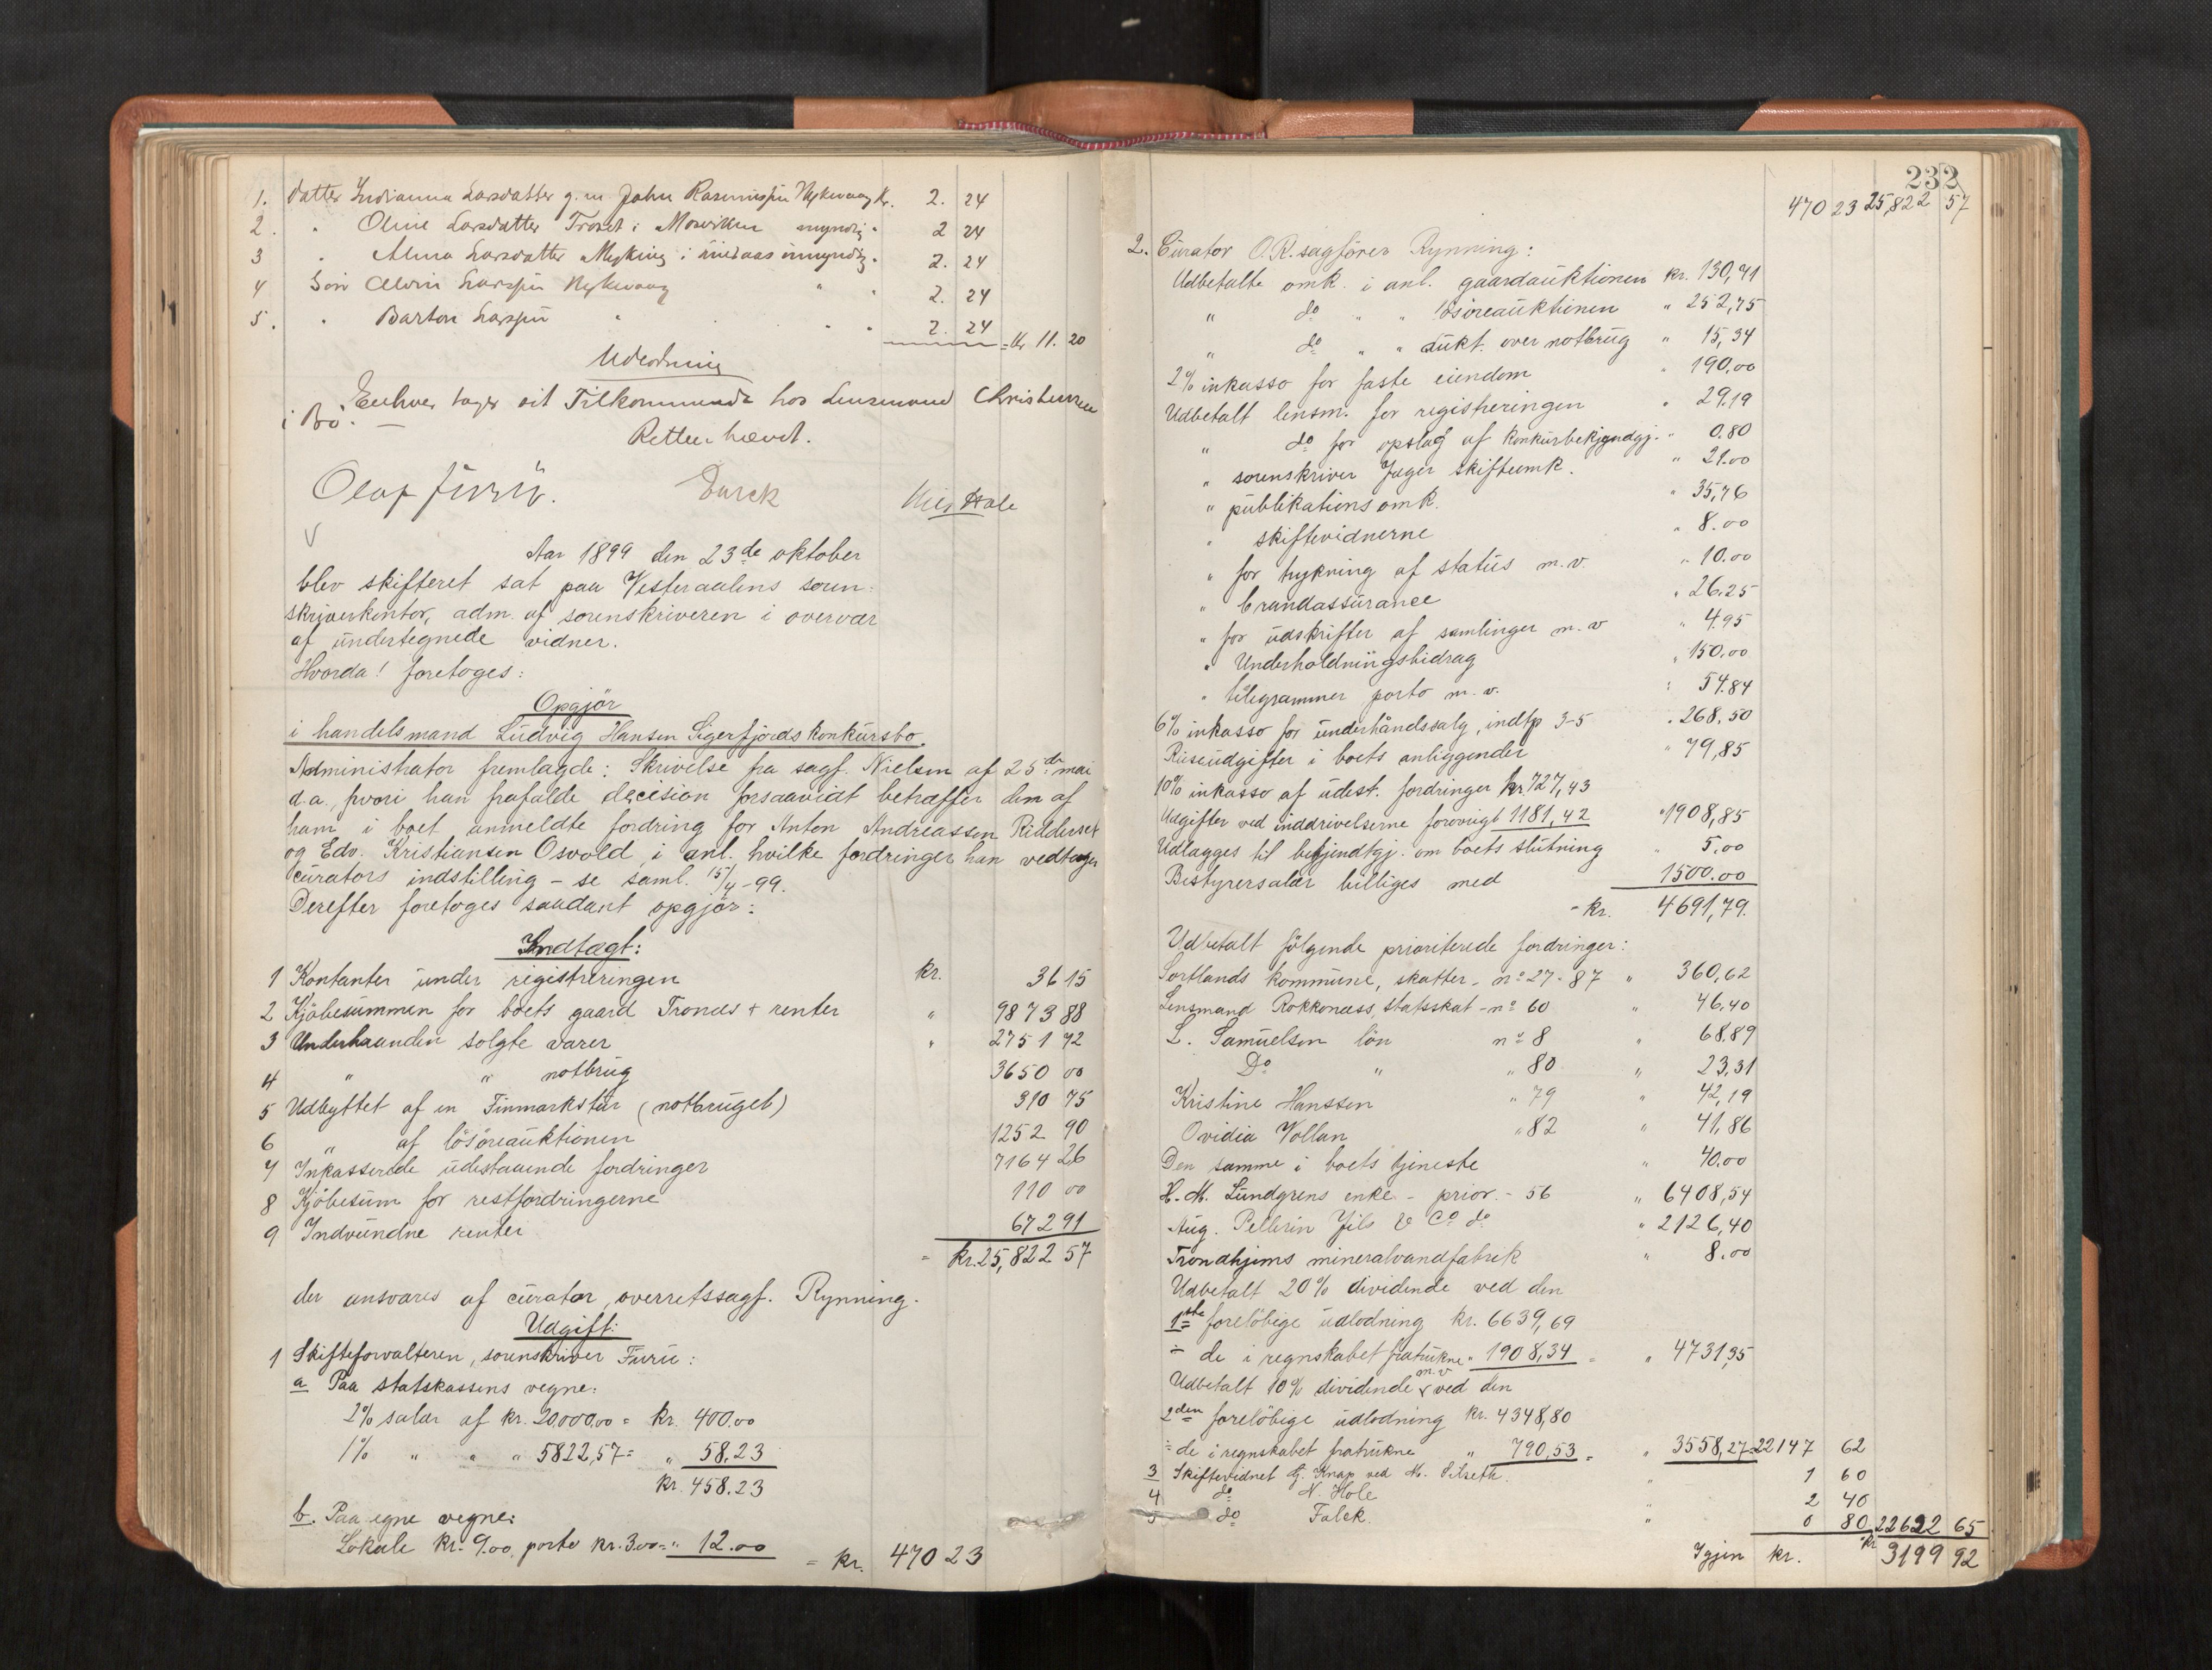 1. Datter Indianna Larsdatter g. m. Johan Rasmussen Nykvaag kr. 2. 24
2. " Oline Larsdatter Troset i myndig " 2 24
3 " Alma Larsdatter Myking i umyndig " 2. 24
4 Søn Alvin Larssen Nykvaag " " 2. 24
5. " Barton Larssen " " " 2. 24 = kr 11. 20
Udlodning
Enhver tager sit Tilkommende hos Lensmand Christensen
i Bø.
Retten hævet.
Olaf Furu. Durck Nils Hole
Aar 1899 den 23de oktober
blev skifteret sat paa Vesteraalens soren-
skriverkontor, adm. af sorenskriveren i overvær
af undertegnede vidner.
Hvorda! foretoges:
Opgjør
i handelsmand Ludvig Hansen Sigerfjords konkursbo.
Administrator fremlagde: Skrivelse fra sagf. Nielsen af 25de mai
d.a., hvori han frafaldt decision forsaavidt betræffer den af
ham i boet anmeldte fordring for Anton Andreassen Ridderset
og Edv. Kristiansen Osvold, i anl. hvilke fordringer han vedtager
curators indstilling - se saml. 15/4-99.
Derefter foretoges saadant opgjør:
Indtægt:
1 Kontanter under registreringen kr. 36 15
2 Kjøbesummen for boets gaard Tronæs + renter " 9873 88
3 Underhaanden solgte varer " 2751 72
4 " " notbrug 3650 00
5 Udbyttet af en Finmarkstur (notbruget) 310 75
6 " af løsøreauktionen 1252 90
7 Inkasserede udestaaende fordringer 7164 26
8 Kjøbesum for restfordringerne 110 00
9 Indvundne renter 672 91
= kr. 25,822 57
der ansvares af curator, overretssagf. Rynning.
Udgift:
1 Skifteforvalteren, sorenskriver Furu:
a Paa statskassens vegne:
2% salær af kr. 20000,00 = kr. 400.00
1% " " " 5822,57 = " 58.23
kr. 458.23
b. Paa egne vegne:
Lokale kr. 9.00, porto kr. 3.00 = " 12.00 = kr. 470 23
232
470 23 25,822 57
2. Curator O.R.sagfører Rynning:
Udbetalte omk. i anl. gaardauktionen kr. 130,41
" do " " løsøreauktionen " 252,75
" do " " aukt. over notbrug " 15,34
2% inkasso for faste eiendom " 190,00
Udbetalt lensm. for registreringen " 29.19
" do for opslag af konkursbekjendtgj. " 0.80
" sorenskriver Jager skifteomk. " 21.00
" publikationsomk. " 35,76
" skiftevidnerne " 8.00
" for trykning af status m.v. " 10.00
" brandassurance " 26.25
" for udskrifter af samlinger m.v " 4.95
" Underholdningsbidrag " 150.00
" telegrammer porto m.v. " 54.84
6% inkasso for underhåndssalg, indtp 3-5 " 268.50
Reiseudgifter i boets anliggender " 79,85
10% inkasso af udest. fordringer kr. 727,43
Udgifter ved inddrivelserne forøvrigt 1181,42 " 1908,85
Udlægges til bekjendtgj. om boets slutning " 5.00
Bestyrersalær billiges med 1500.00
= kr. 4691,79.
Udbetalt følgende prioriterede fordringer:
Sortlands kommune, skatter - no 27-87 " 360,62
Lensmand Rokkonæss, statsskat - no 60 " 46,40
L. Samuelsen løn no 8 " 68.89
Do " " 80 " 23,31
Kristine Hanssen " 79 " 42,19
Ovidia Vollan " 82 " 41,86
Den samme i boets tjeneste " 40.00
H. M. Lundgrens enke - prior. - 56 " 6408,54
Aug. Pellerin Fils & Co do " 2126,40
Trondhjems mineralvandfabrik " 8.00
Udbetalt 20% dividende ved den
1ste foreløbige udlodning kr. 6639,69
÷ de i regnskabet fratrukne " 1908,34 = " 4731,35
Udbetalt 10% dividende m.v ved den
2den foreløbige udlodning kr. 4348,80
÷ de i regnskabet fratrukne " 790,53 = " 3558,27 = 22147 62
3 Skiftevidnet G. Knap ved M. Silseth. " 1 60
4 do N. Hole 2 40
5 do Falck. " 0 80 22622 65
Igjen kr. kr 3199 92